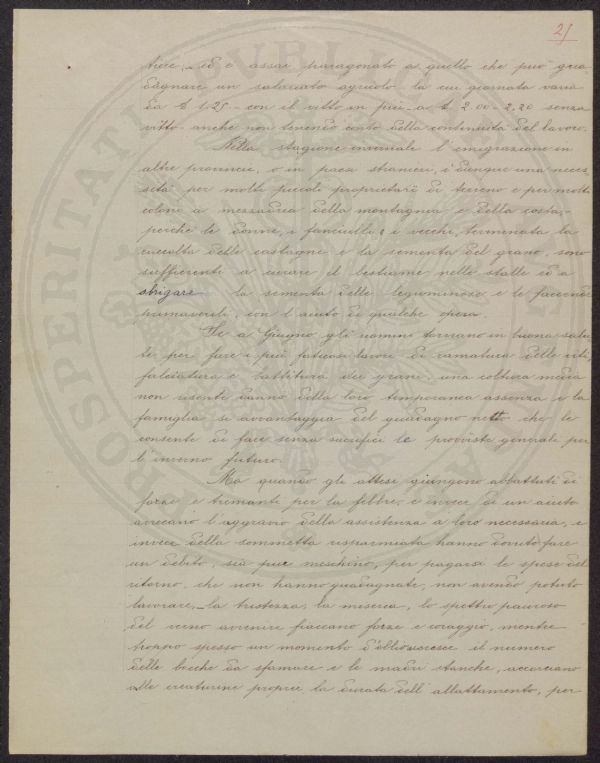 21
trice, - ed è assai paragonato a quello che può gua-
dagnare un salariato agricolo la cui giornata varia
da £ 1.25 - con il vitto in più - a £ 2.00 - 2.20 senza
vitto anche non tenendo conto della continuità del lavoro.
Nella stagione invernale l'emigrazione in
altre provincie, o in paesi stranieri, è dunque una neces-
sità per molti piccoli proprietarii di terreno e per molti
coloni a mezzadria della montagna e della costa,-
perchè le donne, i fanciulli e i vecchi, terminata la
raccolta delle castagne e la sementa del grano, sono
sufficienti a curare il bestiame nelle stalle ed a
sbrigare la sementa delle leguminose e le faccende
primaverili, con l'aiuto di qualche opera.
Se a Giugno gli uomini tornano in buona salu-
te per fare i più faticosi lavori di ramatura delle viti,
falciatura e battitura dei grani, una coltura media
non risente danno della loro temporanea assenza e la
famiglia si avvantaggia del guadagno netto che le
consente di fare senza sacrifici le provviste generali per
l'inverno futuro.
Ma quando gli attesi giungono abbattuti di
forze e tremanti per la febbre, e invece di un aiuto
arrecano l'aggravio della assistenza a loro necessaria, e
invece della sommetta risparmiata hanno dovuto fare
un debito, sia pure meschino, per pagarsi le spese del
ritorno, che non hanno guadagnate, non avendo potuto
lavorare, - la tristezza, la miseria, lo spettro pauroso
del nero avvenire fiaccano forze e coraggio, mentre
troppo spesso un momento d'oblio accresce il numero
delle bocche da sfamare e le madri stanche, accorciano
alle creaturine proprie la durata dell'allattamento, per
PROSPERITATI PUBLICAE